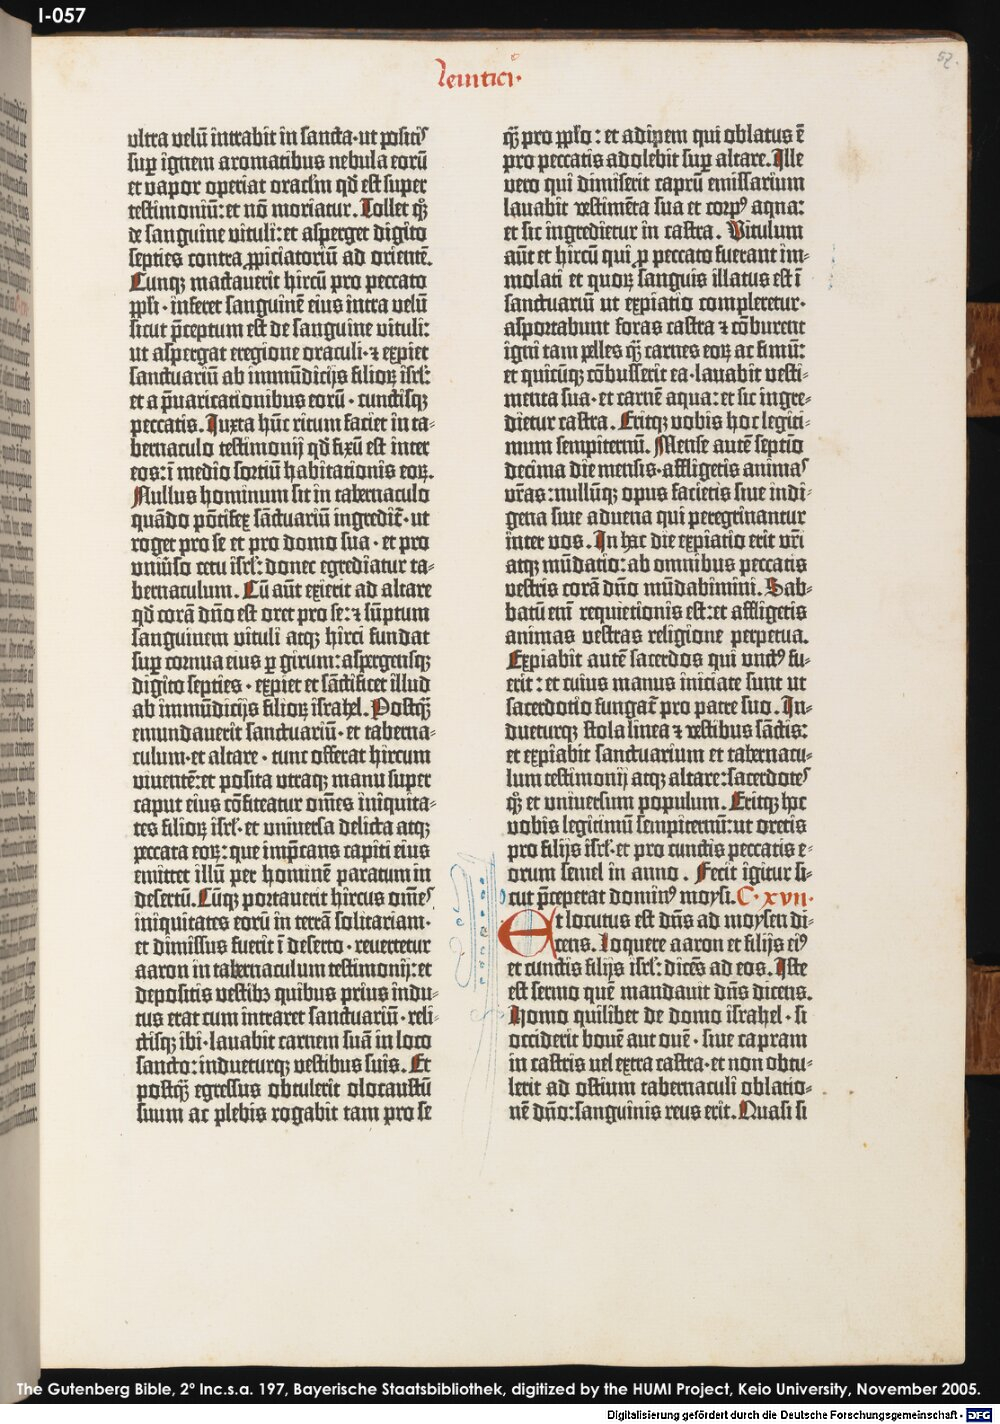 I-057
57.
leuitici·
ultra velū intrabit in sancta·ut positis
sup ignem aromatibus nebula eorū
et vapor operiat oraclm qd̄ est super
testimoniū: et nō moriatur. Tollet qȝ
de sanguine vituli: et asperget digito
septies contra ꝓpiciatoriū ad orientē.
Cunqȝ mactauerit hircū pro peccato
ppli·inferet sanguinē eius intra velū
sicut p̄ceptum est de sanguine vituli:
ut aspergat eregione oraculi·⁊ expiet
sanctuariū ab immūdicijs filioꝝ isrl̄:
et a p̄uaricationibus eorū·cunctisqȝ
peccatis. Juxta hūc ritum faciet in ta-
bernaculo testimonij qd̄ fixū est inter
eos: ī medio sortiū habitationis eoꝝ.
Nullus hominum sit in tabernaculo
quādo pōtifex sāctuariū ingredit̄·ut
roget pro se et pro domo sua·et pro
vniūso cetu isrl̄: donec egrediatur ta-
bernaculum. Cū aūt exierit ad altare
qd̄ corā dn̄o est oret pro se: ⁊ sūptum
sanguinem vituli atqȝ hirci fundat
sup cornua eius ꝑ girum: aspergensqȝ
digito septies·expiet et sāctificet illud
ab immūdicijs filioꝝ israhel. Postqȝ̄
emundauerit sanctuariū·et taberna-
culum·et altare·tunc offerat hircum
viuentē: et posita vtraqȝ manu super
caput eius cōfiteatur om̄es iniquita-
tes filioꝝ isrl̄·et vniuersa delicta atqȝ
peccata eoꝝ: que imp̄cans capiti eius
emittet illū per hominē paratum in
desertū. Cūqȝ portauerit hircus om̄es
iniquitates eorū in terrā solitariam·
et dimissus fuerit ī deserto·reuertetur
aaron in tabernaculum testimonij: et
depositis vestibȝ quibus prius indu-
tus erat cum intraret sanctuariū·reli-
ctisqȝ ibi·lauabit carnem suā in loco
sancto: indueturqȝ vestibus suis. Et
postqȝ̄ egressus obtulerit olocaustū
suum ac plebis rogabit tam pro se
qȝ̄ pro pplo: et adipem qui oblatus ē
pro peccatis adolebit sup altare. Ille
vero qui dimiserit caprū emissarium
lauabit vestimēta sua et corpꝰ aqua:
et sic ingredietur in castra. Vitulum
aūt et hircū qui ꝓ peccato fuerant im-
molati et quoꝝ sanguis illatus est ī
sanctuariū ut expiatio compleretur·
asportabunt foras castra ⁊ cōburent
igni tam pelles qȝ̄ carnes eoꝝ ac fimū:
et quicūqȝ cōbusserit ea·lauabit vesti-
menta sua·et carnē aqua: et sic ingre-
dietur castra. Eritqȝ vobis hoc legiti-
mum sempiternū. Mense autē septīo
decima die mensis·affligetis animas
vr̄as: nullūqȝ opus facietis siue indi-
gena siue aduena qui peregrinantur
inter vos. In hac die expiatio erit vr̄i
atqȝ mūdatio: ab omnibus peccatis
vestris corā dn̄o mūdabimini. Sab-
batū enī requietionis est: et affligetis
animas vestras religione perpetua.
Expiabit autē sacerdos qui vnctꝰ fu-
erit: et cuius manus iniciate sunt ut
sacerdotio fungat̄ pro patre suo. In-
dueturqȝ stola linea ⁊ vestibus sāctis:
et expiabit sanctuarium et tabernacu-
lum testimonij atqȝ altare: sacerdotes
qȝ et vniuersum populum. Eritqȝ hoc
vobis legitimū sempiternū: ut oretis
pro filijs isrl̄·et pro cunctis peccatis e-
orum semel in anno. Fecit igitur si-
cut p̄ceperat dominꝰ moysi. C·xvii·
Et locutus est dn̄s ad moysen di-
cens. Loquere aaron et filijs eiꝰ
et cunctis filijs isrl̄: dicēs ad eos. Iste
est sermo quē mandauit dn̄s dicens.
Homo quilibet de domo israhel·si
occiderit bouē aut ouē·siue capram
in castris uel extra castra·et non obtu-
lerit ad ostium tabernaculi oblatio-
nē dn̄o: sanguinis reus erit. Quasi si
The Gutenberg Bible, 2° Inc.s.a. 197, Bayerische Staatsbibliothek, digitized by the HUMI Project, Keio University, November 2005.
Digitalisierung gefördert durch die Deutsche Forschungsgemeinschaft - DFG